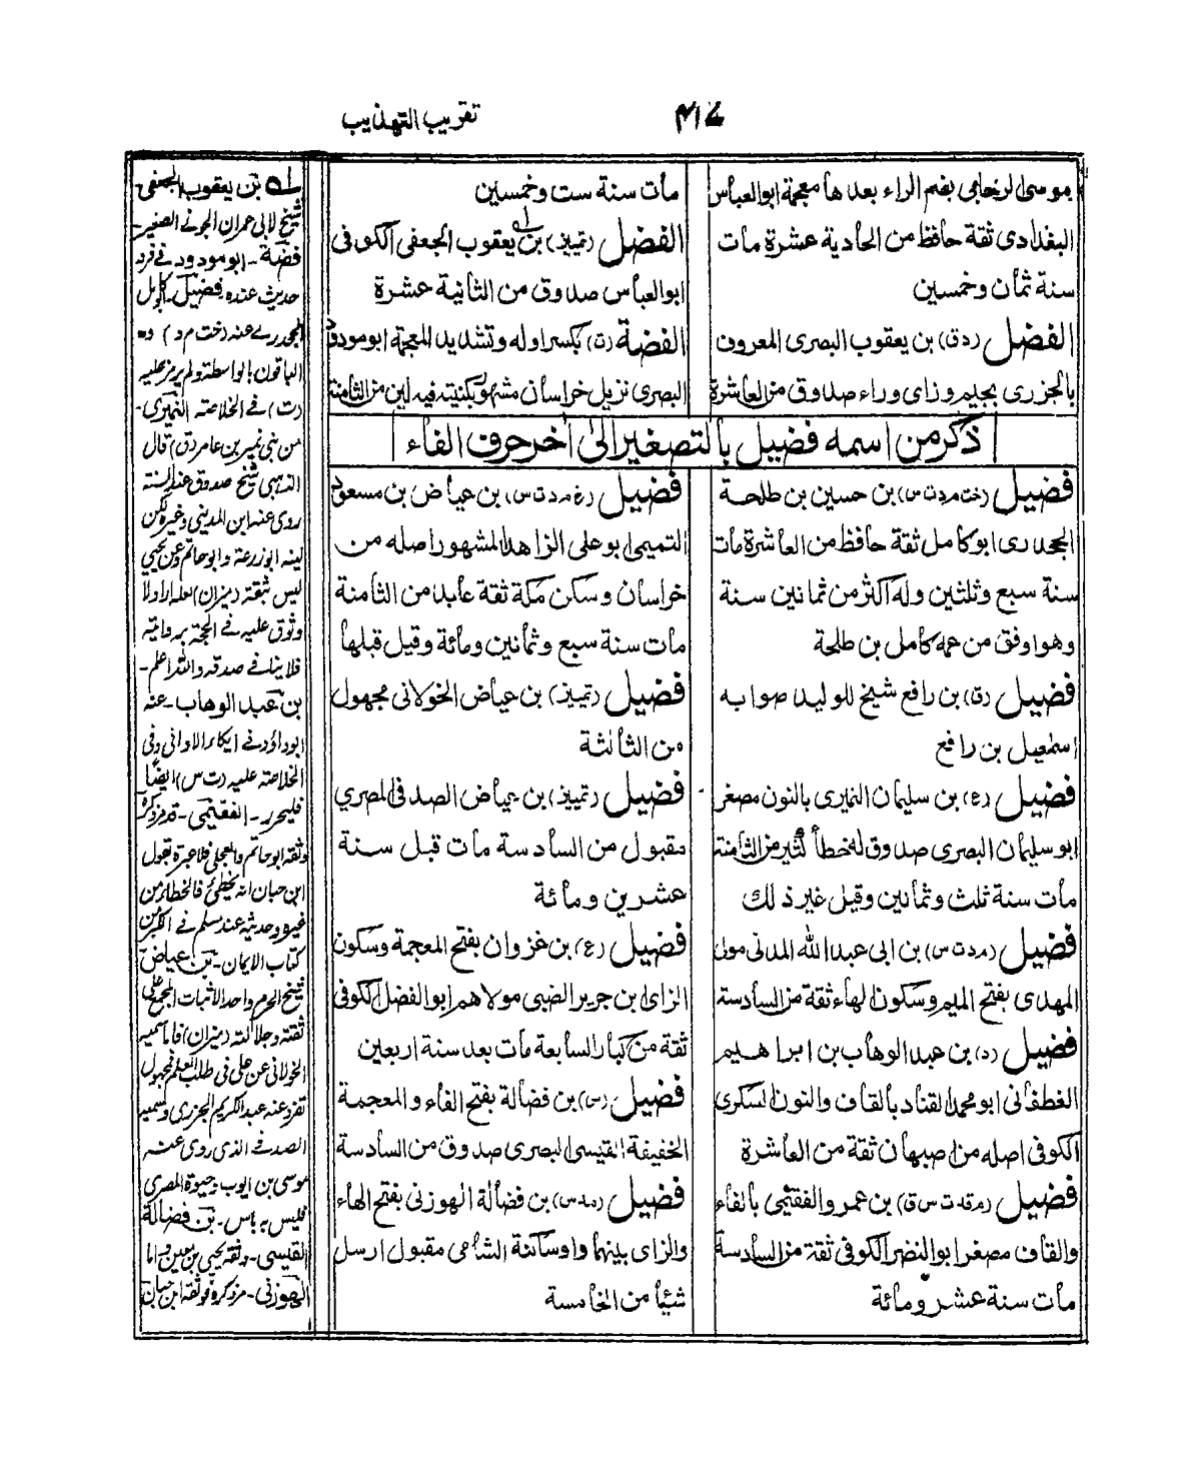 تقريب التهذيب
موسى الرخامى بضم الراء بعدها معجمة ابو العباس
البغدادى ثقة حافظ من الحادية عشرة مات
سنة ثمان وخمسين
الفضل (دق) بن يعقوب البصرى المعروف
بالجزرى بجيم وزاى وراء صدوق من العاشرة
مات سنة ست وخمسين
الفضل (تمييز) بن يعقوب الجعفى الكوفى
ابو العباس صدوق من الثانية عشرة
الفضة (ت) بكسر اوله وتشديد المعجمة ابو مودود
البصرى نزيل خراسان مشهور بكنيته فيه لين من الثامنة
ذكر من اسمه فضيل بالتصغير الى اخر حرف الفاء
فضيل (خت م د ت س) بن حسين بن طلحة
الجحدرى ابو كامل ثقة حافظ من العاشرة مات
سنة سبع وثلثين وله اكثر من ثمانين سنة
وهو اوفق من عمه كامل بن طلحة
فضيل (ق) بن رافع شيخ للوليد صوابه
اسمعيل بن رافع
فضيل (ع) بن سليمان النميرى بالنون مصغر
ابو سليمان البصرى صدوق له خطأ كثير من الثامنة
مات سنة ثلث وثمانين وقيل غير ذلك
فضيل (م د ت س) بن ابى عبد الله المدنى مولى
المهدى بفتح الميم وسكون الهاء ثقة من السادسة
فضيل (د) بن عبد الوهاب بن ابراهيم
الغطفانى ابو محمد القناد بالقاف والنون السكرى
الكوفى اصله من اصبهان ثقة من العاشرة
فضيل (م قد ت س ق) بن عمرو الفقيمى بالفاء
والقاف مصغر ابو النضر الكوفى ثقة من السادسة
مات سنة عشر ومائة
فضيل (خ م د ت س) بن عياض بن مسعود
التميمى ابو على الزاهد المشهور اصله من
خراسان وسكن مكة ثقة عابد من الثامنة
مات سنة سبع وثمانين ومائة وقيل قبلها
فضيل (تمييز) بن عياض الخولانى مجهول
من الثالثة
فضيل (تمييز) بن عياض الصدفى المصري
مقبول من السادسة مات قبل سنة
عشرين ومائة
فضيل (ع) بن غزوان بفتح المعجمة وسكون
الزاى ابن جرير الضبى مولاهم ابو الفضل الكوفى
ثقة من كبار السابعة مات بعد سنة اربعين
فضيل (س) بن فضالة بفتح الفاء والمعجمة
الخفيفة القيسى البصرى صدوق من السادسة
فضيل (مد س) بن فضالة الهوزنى بفتح الهاء
والزاى بينهما واو ساكنة الشامى مقبول ارسل
شيئا من الخامسة
بن يعقوب الجعفى
شيخ لابى عمران الجونے الصغير-
فضة - ابو مودود فے فرد
حديث عنده فضيل - كامل
الجحدرے عنه (خت م د)
الباقون بالواسطة ولم يرمز عليه
(ت) فے الخلاصة النميرى-
من بنى نمير بن عامر (ق) قال
الذهبى شيخ صدوق عند الستة
روى عنه ابن المدينى وغيره لكن
لينه ابو زرعة و ابو حاتم وعن يحيى
ليس بثقة (ميزان)
فے صدقه والله اعلم -
بن عبد الوهاب - عنه
ابو داؤد فے
الخلاصة عليه (ت س) ايضا
فليحرر - الفقيمى -
وثقه ابو حاتم والعجلى فلا عبرة بقول
ابن حبان انه يخطئ فالخطأ من
غيره وحديثه عند مسلم فے الكبر من
كتاب الايمان - بن عياض
شيخ الحرم واحد الاثبات المجمع على
ثقته وجلالته (ميزان) فاما سميه
الخولانى عن على فى طلب العلم فمجهول
تفرد عنه عبد الكريم الجزرى وسميه
الصدفے الذى روى عنه
موسى بن ايوب وحيوة المصرى
فليس به باس - بن فضالة
القيسى - وثقه يحيى بن معين واما
الهوزنى - مر ذكره وثقه ابن حبان